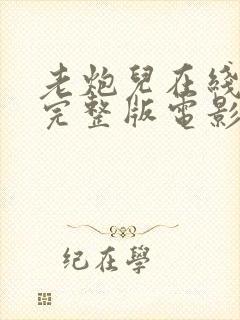 老炮兒在綫
完整版電影
纪在學